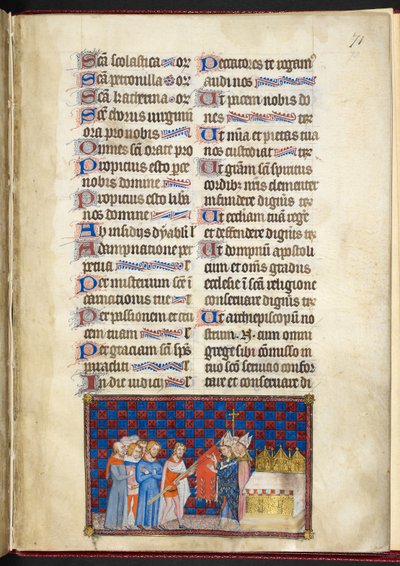 71
Scā scolastica or
Scā petronilla or
Scā katherina or
Scē chorus uirginum
ora pro nobis
Omnes scī orate pro
Propicius esto parce
nobis domine
Propicius esto libera
nos domine
Ab insidiis dyaboli l
A dampnatione per
petua l
Per misterium scē i
carnationis tue l
Per passionem et cru
cem tuam l
Per graciam scī sps
paracliti l
In die iudicii l
Peccatores te rogam
audi nos
Ut pacem nobis do
nes te r
Ut mīa et pietas tua
nos custodiat te r
Ut grām scī spiritus
cordibus nr̄is clementer
infundere digneris te r
Ut eccliam tuā rege
et deffendere digneris te r
Ut dompnum apostoli
cum et om̄s gradus
ecclesie ī scā religione
conseruare digneris te r
Ut archiepiscopum no
strum .N. cum omni
grege sibi cōmisso in
tuo scō seruicio confor
tare et conseruare di